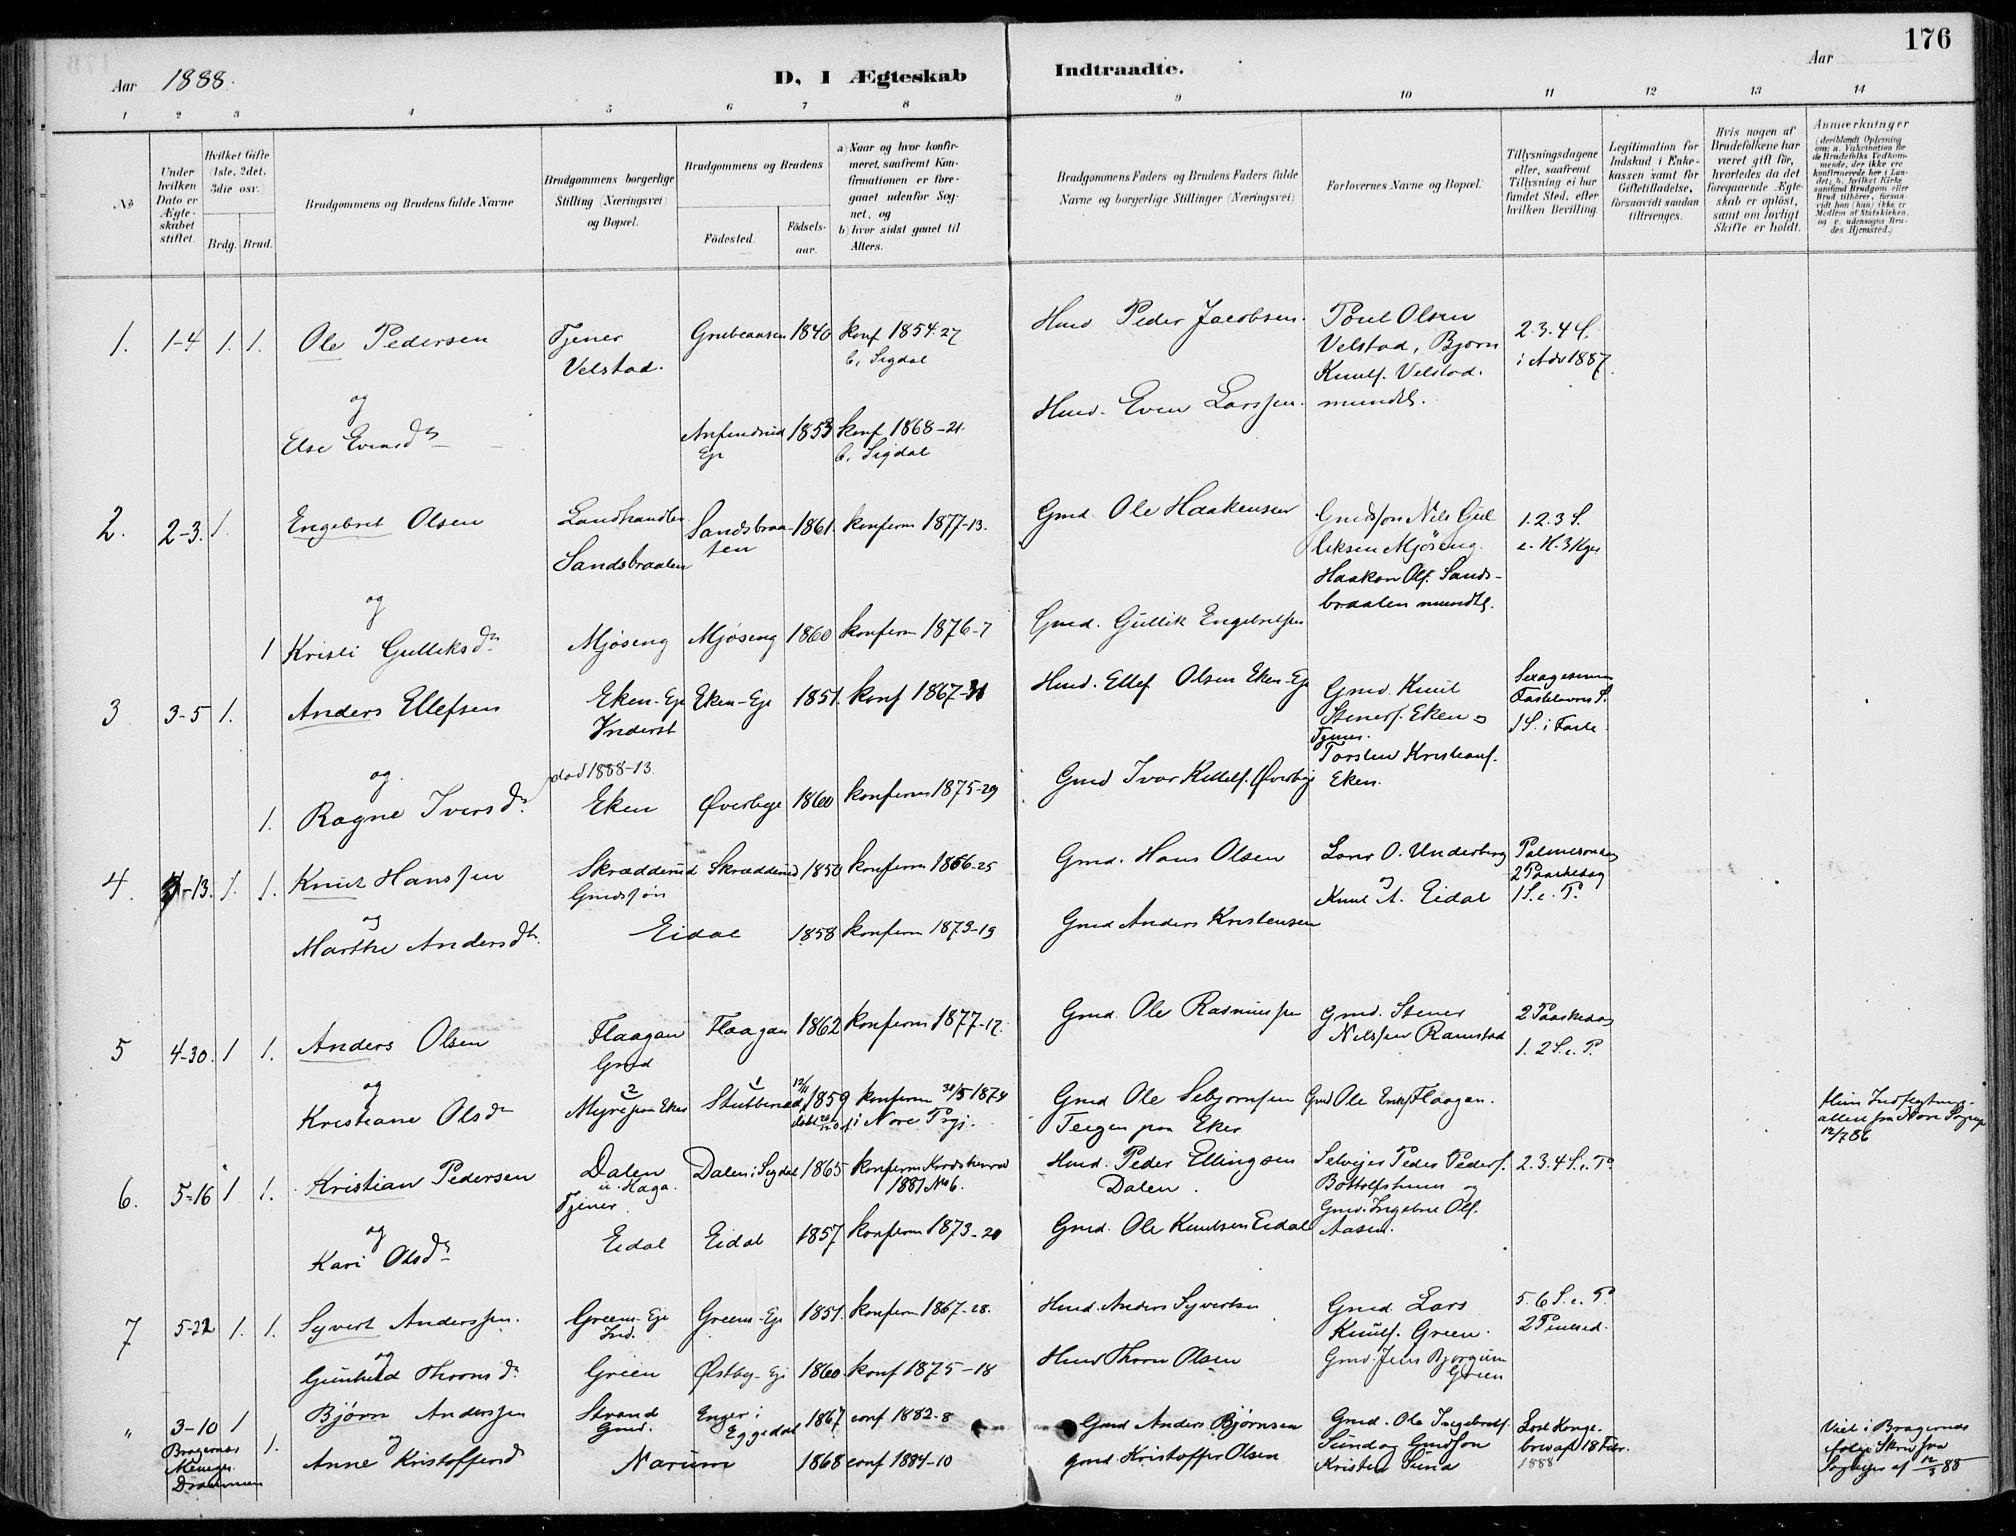 176
Aar 1888.
D, I Ægteskab Indtraadte.
Aar
1 2 3 4 5 6 7 8 9 10 11 12 13 14
No
Under hvilken Dato er Ægteskabet stiftet.
Hvilket Gifte (1ste, 2det, 3die osv.)
Brdg. Brud.
Brudgommens og Brudens fulde Navne
Brudgommens borgerlige Stilling (Næringsvei) og Bopæl.
Brudgommens og Brudens
Födested.
Födsels-aar.
a) Naar og hvor konfirmeret, saafremt Konfirmationen er foregaaet udenfor Sognet, og
b) hvor sidst gaaet til Alters.
Brudgommens Faders og Brudens Faders fulde Navne og borgerlige Stillinger (Næringsvei)
Forlovernes Navne og Bopæl.
Tillysningsdagene eller, saafremt Tillysning ei har fundet Sted, efter hvilken Bevilling.
Legitimation for Indskud i Enkekassen samt for Giftetilladelse, forsaavidt saadan tiltrænges.
Hvis nogen af Brudefolkene har været gift för, hvorledes da det foregaaende Ægteskab er oplöst, samt om lovligt Skifte er holdt.
Anmærkninger
1. 1-4 1. 1. Ole Pedersen Tjener Velstad. Grubeaasen 1840 konf 1854-27 b. Sigdal
Hmd Peder Jacobsen. Poul Olsen Velstad, Bjørn Knuts. Velstad. mundtl. 2.3.4 S. i Adv 1887.
og
Else Evensdr Ep 1853 konf 1868-21. b. Sigdal
Hmd. Even Larssen.
2. 2-3. 1. Engebret Olsen Landhandler Sandsbraaten Sandsbraaten 1861. konferm 1877-13.
Gmd. Ole Haakensen Gmdsøn Nils Gulliksen Mjøseng. Haakon Ols. Sandsbraaten mundtl. 1.2.3 S. e. H. 3 Kger
og
1 Kristi Gulliksdr Mjøseng Mjøseng 1860 konferm 1876-7
Gmd. Gullik Engebretsen
3 3-5 1. Anders Ellefsen Eken-Eje Inderst Eken-Eje 1851. konf 1867-31
Hmd. Ellef Olsen Eken-Eje Gmd. Knut Steners. Eken og Tjener. Torsten Kristians. Eken. Sexagesima Fastelavns S. 1 S. i Faste
og. død 1888-13.
1. Ragne Iversdr Eken Øverbye 1860 konferm 1875-29
Gmd Ivar Kittels. Øverbye
4. 4-13. 1. 1. Knut Hanssen Skrædderud Gmdssøn Skrædderud 1850 konferm 1866-25
Gmd. Hans Olsen Lars O. Underberg og Knut A. Eidal Palmesøndag 2 Paaskedag 1 S. e. P.
og
Marthe Andersdr. Eidal 1858 konferm 1873-19
Gmd Anders Kristensen
5 4-30. 1 1. Anders Olsen Flaagan Gmd Flaagan 1862 konferm 1877-12.
Gmd. Ole Rasmussen Gmd. Stener Nilssen Ramstad 2 Paaskedag 1. 2 S. e. P.
og
Kristiane Olsdr Myre paa Eker 12/11 1859 konferm 30/5 1874 i Nore Pgj.
Gmd Ole Sebjørnsen Teigen paa Eker Gmd Ole Flaagan.
12/7 86
6. 5-16 1 1. Kristian Pedersen Dalen Tjener Dalen i Sigdal 1865 konferm Krødsherred 1881 No 6.
Hmd. Peder Ellingsen Dalen. Selveier Peder Peders. og Gmd. Ingebret Ols. Aasen. 2.3.4 S. e. P.
og
Kari Olsdr Eidal Eidal 1857 konferm 1873-20
Gmd. Ole Knutsen Eidal
7 5-22 1. 1. Syvert Anderssen. Green-Eje Ind. Green-Eje 1851. konferm 1867-28.
Hmd. Anders Syvertsen Gmd. Lars Knuts. Green. 5.6 S. e. P. 2 Pintsed.
og
Gunhild Thronsdr Green Østby-Eje 1860. konf 1875-18
Hmd Thron Olsen Gmd. Jens Bjørgum Green
" 3-10 1 Bjørn Anderssen Strand Gmd. Enger i Eggedal 1867 conf 1882-8
Gmd Anders Bjørnsen Gmd. Ole Ingebrets. Sund og Gmdsøn Kristen Sund Løst Kongebrev af 18 Febr. 1888
Bragernes Menigh. Drammen 1. og Anne Kristoffersd Narum 1868 conf 1884-10
Gmd. Kristoffer Olsen
Viet i Bragernes